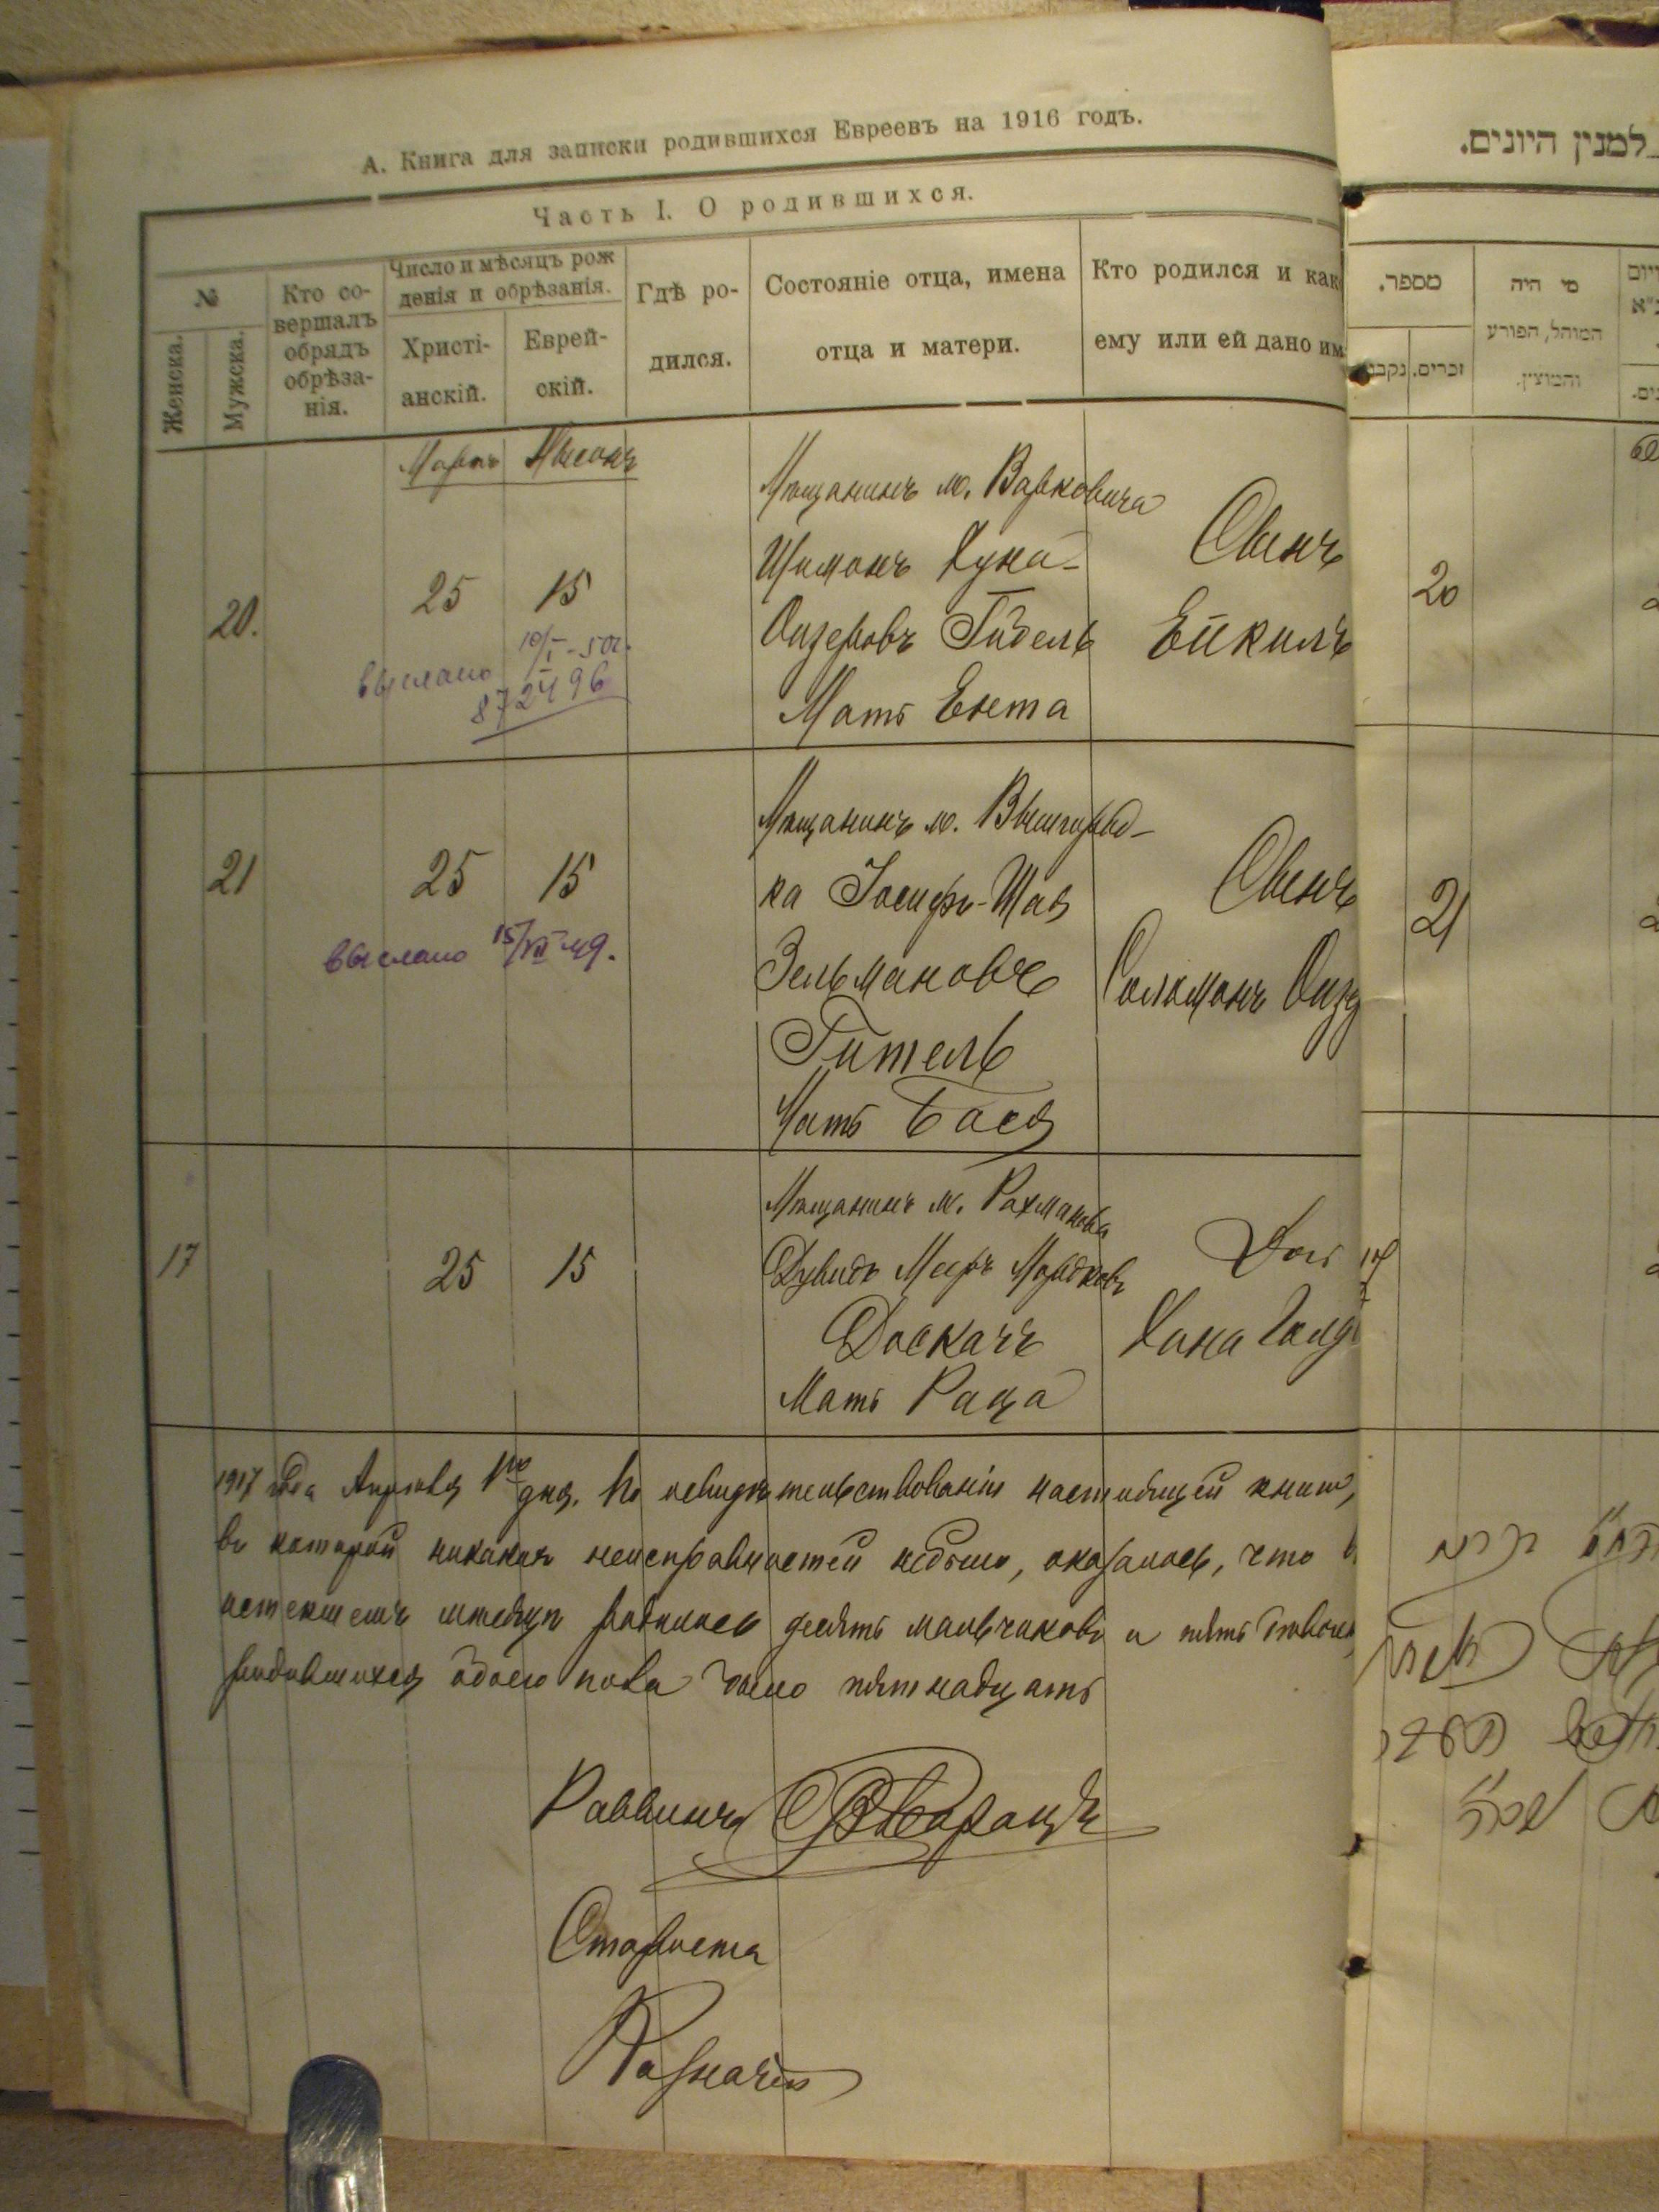 А. Книга для записки родившихся Евреевъ на 1916 годъ.
Часть I. О родившихся.
№
Женска.
Мужска.
Кто со-
вершалъ
обрядъ
обрѣза-
нія.
Число и мѣсяцъ рож
денія и обрѣзанія.
Христі-
анскій.
Еврей-
скій.
Гдѣ ро-
дился.
Состояніе отца, имена
отца и матери.
Кто родился и как
ему или ей дано им
Мартъ Нисонъ
20.
25
15
выслано 10/I-50г.
872496
Мѣщанинъ м. Варковича
Шимонъ Хуна-
Ойзеровъ Гидель
Мать Ента
Сынъ
Ейкилъ
21
25
15
выслано 15/VII 49.
Мѣщанинъ м. Вышгород-
ка Іосифъ-Шая
Зельмановъ
Гительь
Мать Бася
Сынъ
Соломонъ Ойзе
17
25
15
Мѣщанинъ м. Рахманова
Дувидъ Мееръ Мордковъ
Доскачъ
Мать Раца
Дочь
Хана Голд
1917 года Апрѣля 1го дня. По освидѣтельствованіи настоящей книги,
въ которой никакихъ неисправностей небыло, оказалось, что в
истекшемъ мѣсяцѣ родилось десять мальчиковъ и пять дѣвоче
родившихся обоего пола было пятнадцать
Раввинъ
Староста
Казначей
למנין היונים.
מספר.
זכרים.
נקבו
מי היה
המוהל, הפורע
והמוצץ.
20
21